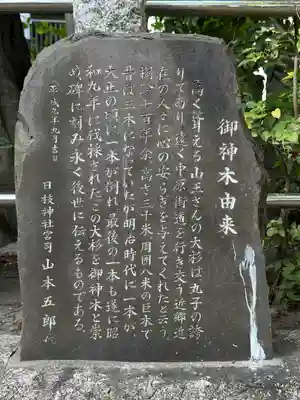 御神木由来
高く聳える山王さんの大杉は丸子の誇
りであり、遠く中原街道を行き交う近郷近
在の人々に心の安らぎを与えてくれたと云う
樹令千百年余、高さ三十米周囲八米の巨木で
昔は三本になっていたが明治時代に一本が
大正の頃に一本が倒れ最後の一本も遂に昭
和九年に伐採されたこの大杉を御神木と崇
め碑に刻み永く後世に伝えるものである。
平成九年九月吉日
日枝神社宮司山本五郎